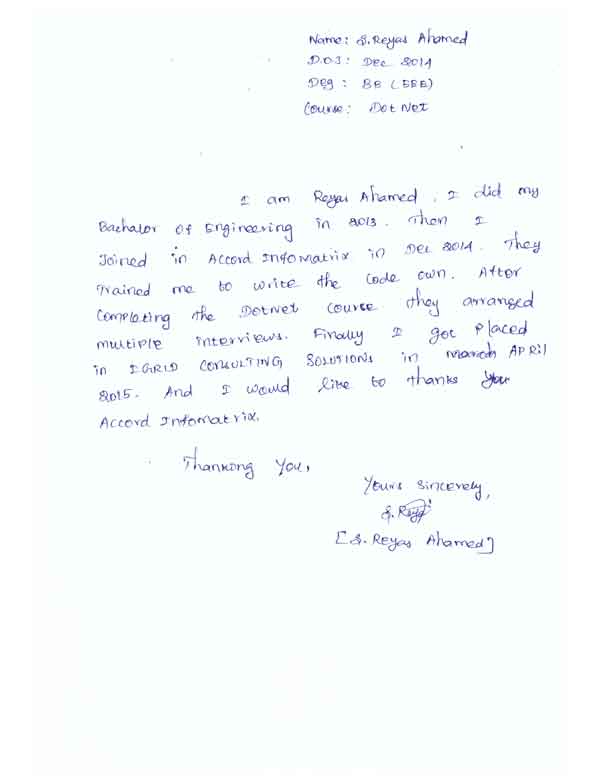 Name: S. Reyas Ahamed
D.O.J: Dec 2014
Deg: BE (EEE)
Course: Dot Net
I am Reyas Ahamed. I did my
Bachalor of Engineering in 2013. Then I
Joined in Accord Infomatrix in Dec 2014. They
Trained me to write the code own. After
Completing the DotNet course they arranged
multiple interviews. Finally I got placed
in IGRID CONSULTING SOLUTIONS in March APRil
2015. And I would like to thanks you
Accord Infomatrix.
Thanking You,
Yours Sincerely,
S. Reyas
[S. Reyas Ahamed]